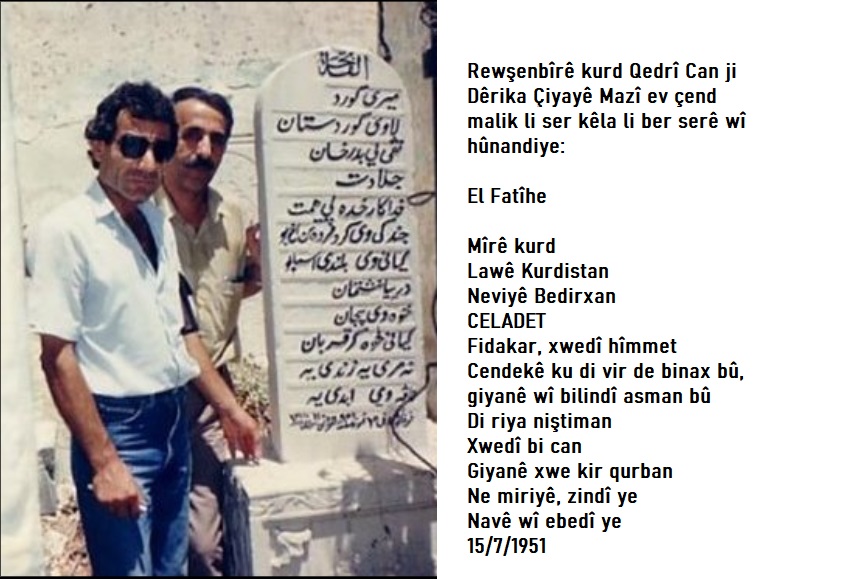 الفاتحة
ميري كورد
لاوي كوردستان
نفي يي بدرخان
جلادت
فداكار خده يي همت
بلندي اسمان بو
دريا نشتمان
خوه وي بجان
كياني خوه كر قربان
نه مري يه زندي يه
ابدي يه
Rewşenbîrê kurd Qedrî Can ji
Dêrika Çiyayê Mazî ev çend
malik li ser kêla li ber serê wî
hûnandiye:
El Fatîhe
Mîrê kurd
Lawê Kurdistan
Neviyê Bedirxan
CELADET
Fidakar, xwedî hîmmet
Cendekê ku di vir de binax bû,
giyanê wî bilindî asman bû
Di riya niştiman
Xwedî bi can
Giyanê xwe kir qurban
Ne miriyê, zindî ye
Navê wî ebedî ye
15/7/1951